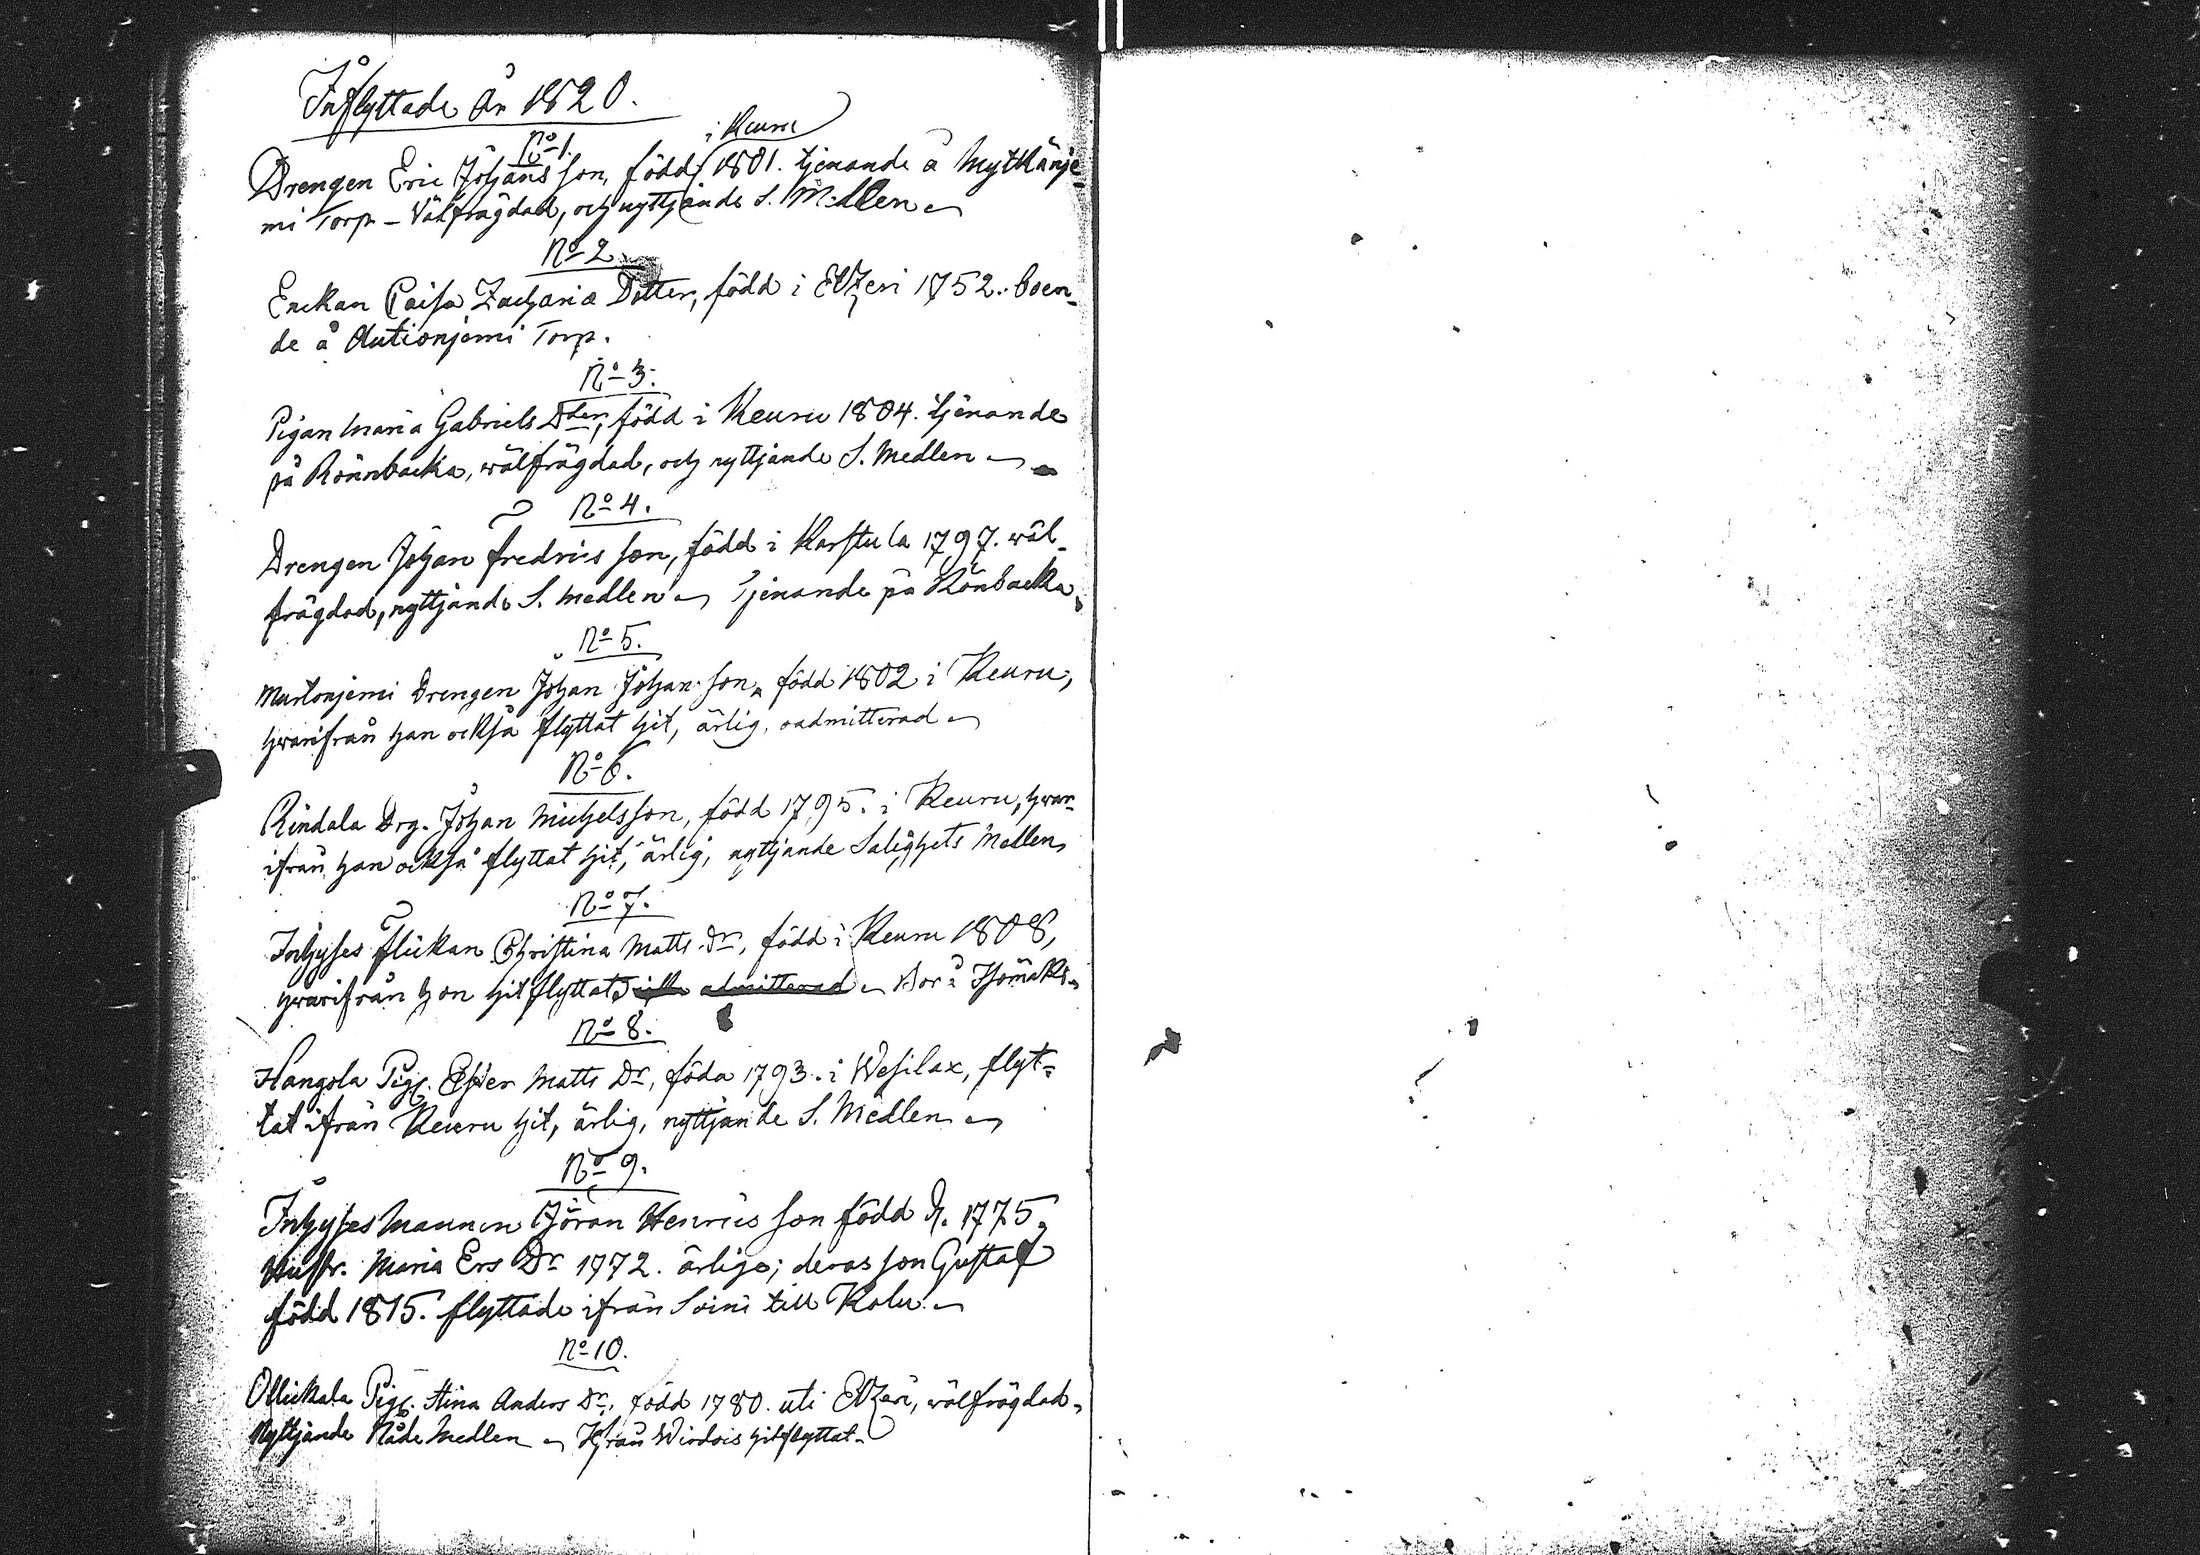 Inflyttade År 1820.
No 1.
i Keuru
Drengen Eric Johans son, född 1801. tjenande å Mytkänje-
mi Torp - Välfrägdad, och nyttjande S. Medlen
No 2.
Enckan Caisa Zachariæ Dotter, född i Etzeri 1752. boen-
de å Autionjemi Torp.
No 3.
Pigan Maria Gabriels Dter, född i Keuru 1804. tjenande
på Rönnbacka, wälfrägdad, och nyttjande S. Medlen
No 4.
Drengen Johan Fredrics son, född i Karstula 1797. wäl-
frägdad, nyttjande S. Medlen Tjenande på Rönbacka
No 5.
Murtonjemi Drengen Johan Johan son, född 1802 i Keuru,
hwarifrån han också flyttat hit, ärlig, oadmitterad
No 6.
Rindala Drg. Johan Michelsson, född 1795. i Keuru, hwar-
ifrån han också flyttat hit, ärlig, nyttjande Salighets Medlen
No 7.
Inhyses Flickan Christina Matts Dr, född i Keuru 1808,
hwarifrån hon hitflyttat, icke admitterad Bor å
No 8.
Hangola Pig. Ester Matts Dr, föda 1793. i Wesilax, flyt-
tat ifrån Keuru hit, ärlig, nyttjande S. Medlen
No 9.
Inhyses Mannen Jöran Henrics son född 1775
Hustr. Maria Ers Dr 1772. ärlige; deras son Gustaf
född 1815. flyttade ifrån Soini till Kolu
No 10.
Ollickala Pig. Stina Anders Dr, född 1780. uti Etzeri, wälfrägdad,
Nyttjande Nåde Medlen Ifrån Wirdois hitflyttat